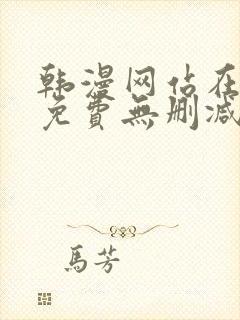 韩漫网站在
免費無删減
馬芳